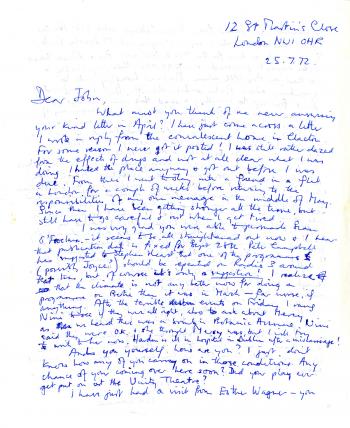 12 St Martin's Close
London NW1 0HR
25.7.72.
Dear John,
What must you think of me never answering
your kind letter in April? I have just come across a letter
I wrote in reply from the convalescent home in Clacton
For some reason I never got it posted! I was still rather dazed
from the effects of drugs and not at all clear what I was
doing. I hated the place anyway & got out before I was
due. From there I went to stay with a friend in a flat
in London for a couple of weeks before returning to the
responsibility of my own menage in the middle of May.
Since then I have been getting stronger all the time, but
still have to go careful & out when I get tired.
I was very glad you were able to persuade Fran
O'Toole it seems to be all straightened out now & I hear
that publication date is fixed for Sept 28th. Pete Campbell
has suggested to Stephen Hearst that one of the programmes
(possibly Joyce's) should be repeated on R. 3 around
that time but of course it's only a suggestion! I realize
that the climate is not any better now for doing a
programme on than it was in March - far worse, if
anything. After the terrible events on Friday I rang
Nini to see if they were all right, also to ask about Henry,
as we heard there was a bomb in Botanic Avenue. Nini
said they were OK, & she thought Henry was but I with
him now. Haden is ill in hospital in Dublin after a miscarriage!
And you yourself, how are you? I just don't
know how any of you carry on in those conditions. Any
chance of your coming over here soon? Did your play ever
get put on at the Unity Theatre?
I have just had a visit from Esther Wagner - you